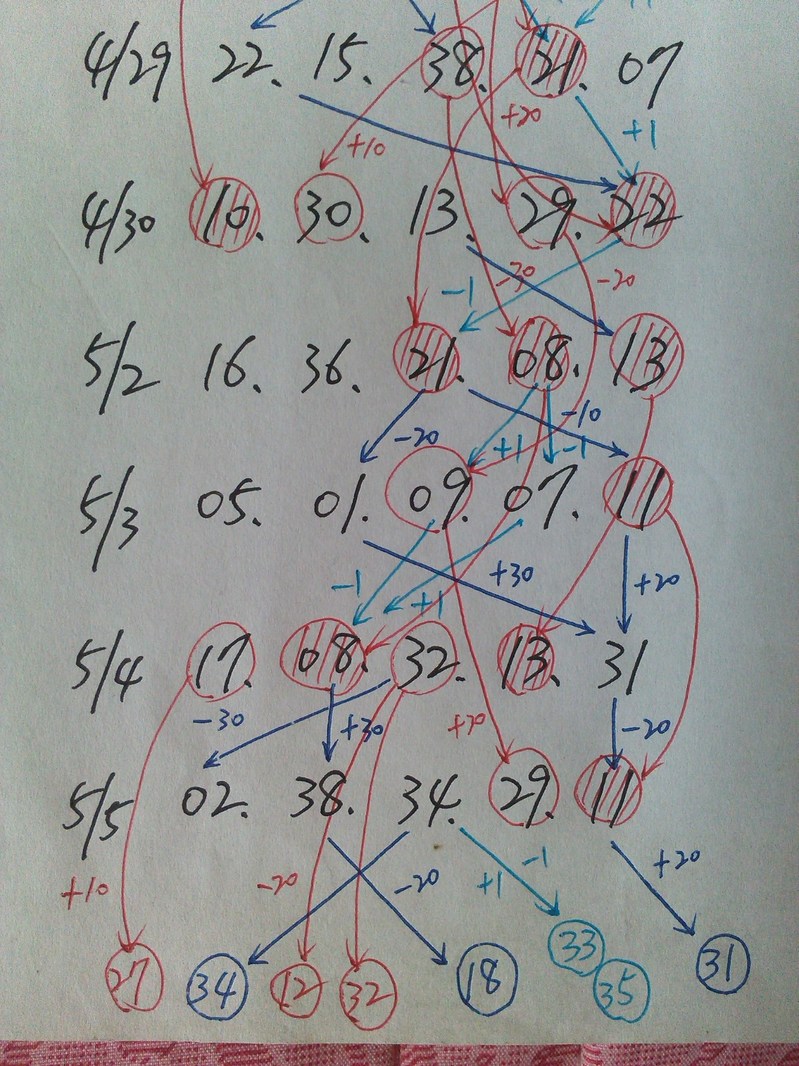 4/29 22. 15. 38. 21. 07
+10 +20 +1
4/30 10. 30. 13. 29. 22
-1 -30 -20
5/2 16. 36. 21. 08. 13
-20 +1 -1 -10
5/3 05. 01. 09. 07. 11
-1 +1 +30 +20
5/4 17. 08. 32. 13. 31
-30 +30 +20 -20
5/5 02. 38. 34. 29. 11
+10 -20 -20 +1 -1 +20
27 34 12 32 18 33 35 31